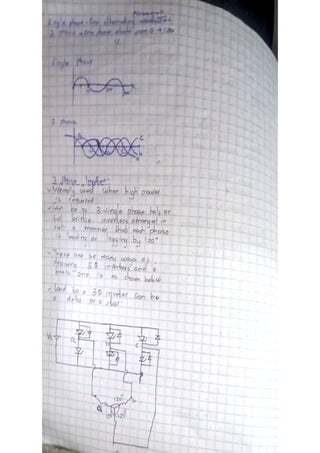 Single phase - One alternating
3 phase - one phase starts from 0 → 120
Single phase
3 phase
3 Phase Inverter
- Normally used when high power
is required
- Can be of 3-single phase half or
full bridge inverters arranged in
such a manner that each phase
is leading or lagging by 120°
- There are so many ways of
drawing 3Ø inverters one
basic one is as shown below
- Load to a 3Ø inverter can be
a delta or a star
Vs
a
b
c
120°